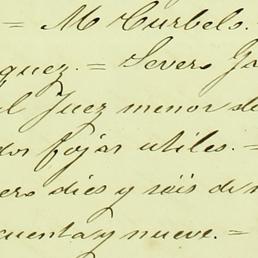 = M Curbelo.
quez. = Severo Ga
el Juez menor de
dos fojas utiles. =
ero dies y seis de m
cuenta y nueve. =